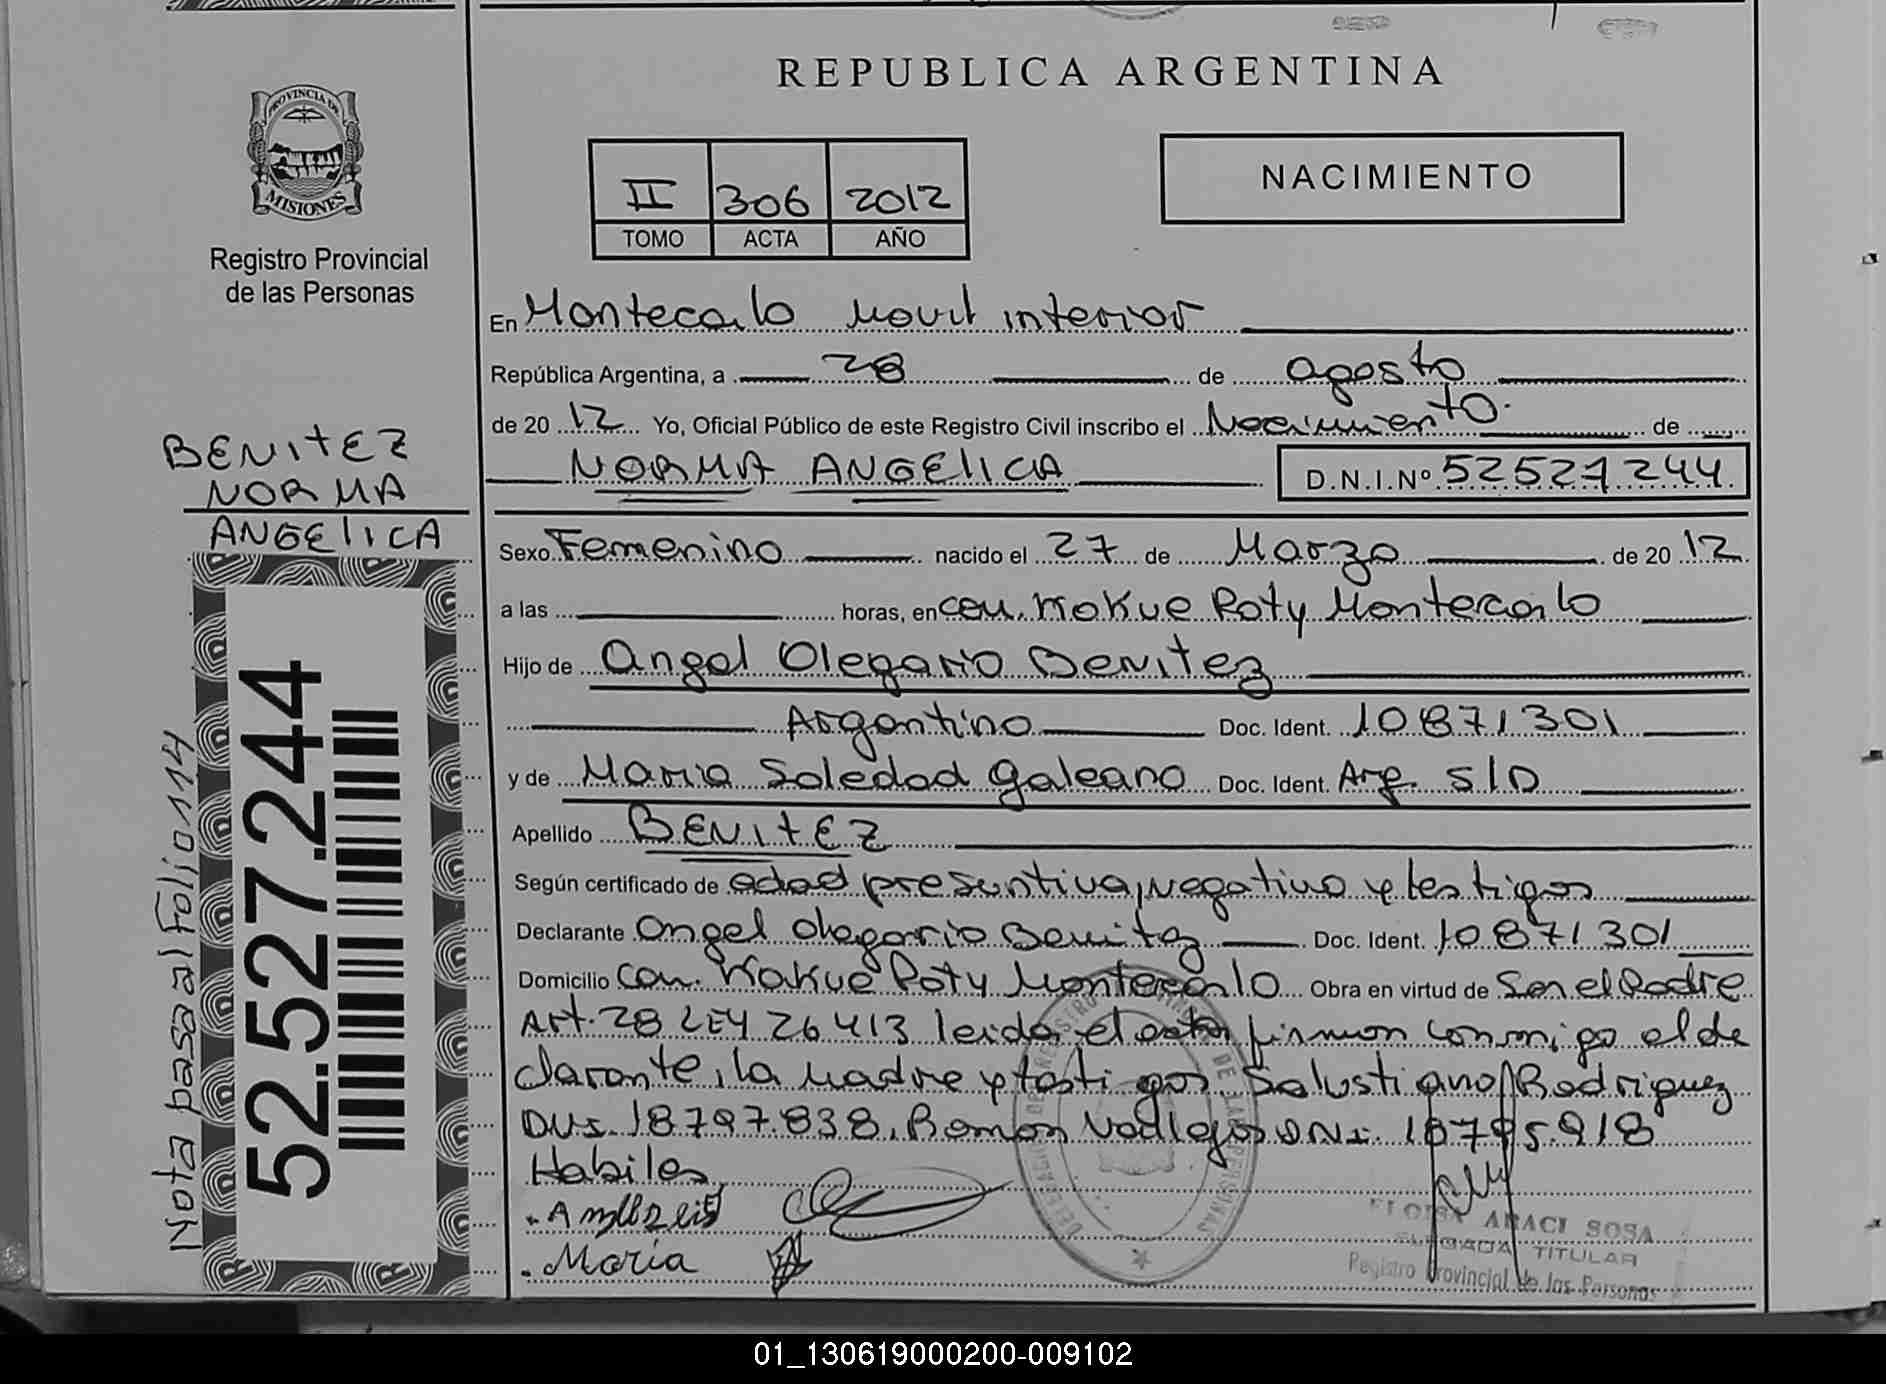 REPUBLICA ARGENTINA
PROVINCIA DE
MISIONES
Registro Provincial
de las Personas
II 306 2012
TOMO ACTA AÑO
NACIMIENTO
En Montecarlo Movil interior
República Argentina, a 28 de agosto
de 20 12 Yo, Oficial Público de este Registro Civil inscribo el Nacimiento de
NORMA ANGELICA D.N.I.Nº 52527244
BENITEZ
NORMA
ANGELICA
52.527.244
Nota pasa al Folio 114
Sexo Femenino nacido el 27 de Marzo de 20 12
a las horas, en com. Kokue Poty Montecarlo
Hijo de Angel Olegario Benitez
Argentino Doc. Ident. 10871301
y de Maria Soledad Galeano Doc. Ident. Arg. S/D
Apellido BENITEZ
Según certificado de edad presuntiva, negativo y testigos
Declarante Angel Olegario Benitez Doc. Ident. 10871301
Domicilio Com. Kokue Poty Montecarlo Obra en virtud de Ser el Padre
Art. 28 LEY 26413 leida el acta firman conmigo el de
clarante, la madre y testigos Salustiano Rodriguez
DNI. 18797.838, Ramon Vallejos DNI. 18795.918
Habiles
Maria
ELOISA ARACI SOSA
DELEGADA TITULAR
Registro Provincial de las Personas
01_130619000200-009102